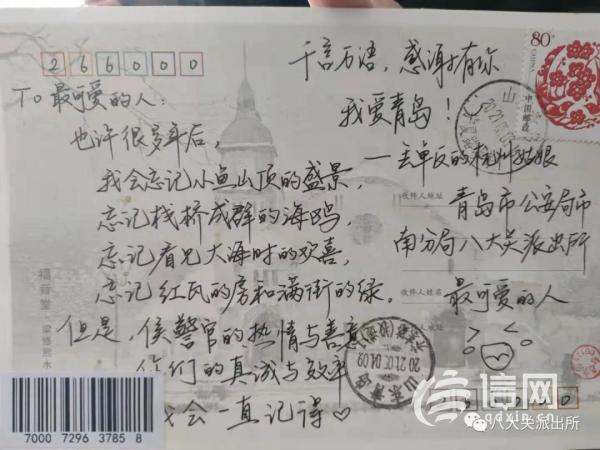 266000
To 最可爱的人:
也许很多年后,
我会忘记小鱼山顶的盛景,
忘记栈桥成群的海鸥,
忘记看见大海时的欢喜,
忘记红瓦的房和满街的绿。
但是,侯警官的热情与善意
你们的真诚与效率
我会一直记得♡
千言万语,感谢有你
我爱青岛!
——丢单反的杭州姑娘
收件人地址
青岛市公安局市
南分局八大关派出所
收件人姓名
最可爱的人
80分
中国邮政
CHINA
山东青岛
2021.05.04.09
福音堂
梁修熙水
7000 7296 3785 8
信网
qdxin.cn
八大关派出所